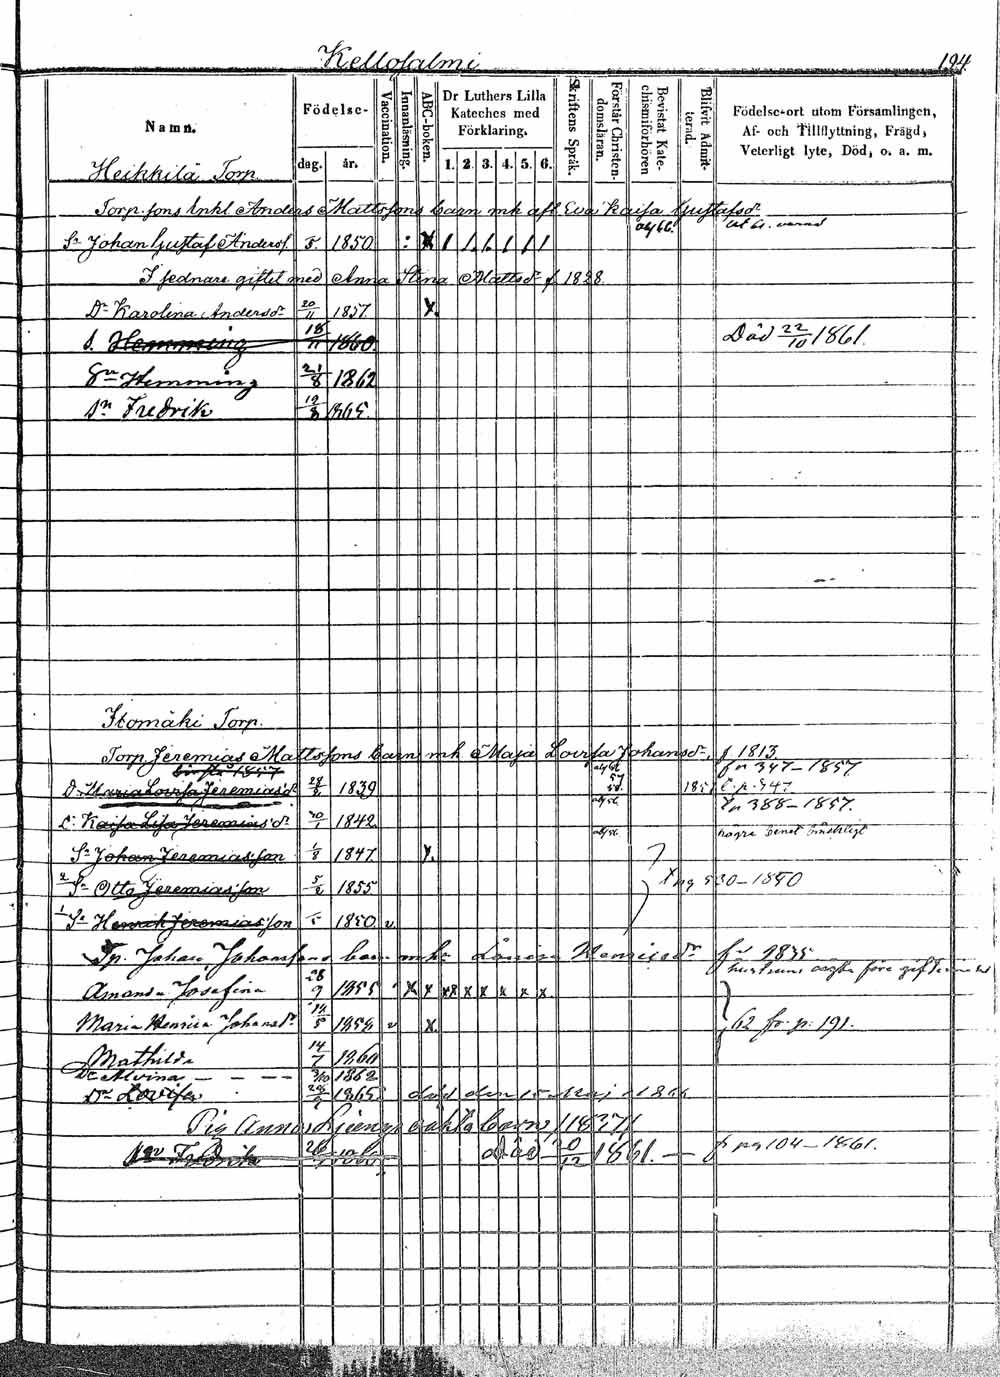 Kellosalmi
194.
Namn.
Födelse-
dag.
år.
Vaccination.
Innanläsning.
ABC-boken.
Dr Luthers Lilla Kateches med Förklaring.
1. 2. 3. 4. 5. 6.
Skriftens Språk.
Förstår Christendomsläran.
Bevistat Katechismiförhören
Blifvit Admitterad.
Födelse-ort utom Församlingen,
Af- och Tillflyttning, Frägd,
Veterligt lyte, Död, o. a. m.
Heikkilä Torp
Torp. sons Enkl Anders Mattssons barn mk afl Eva Kaisa Gustafsdr
Sn Johan Gustaf Anderss. 1850
I sednare giftet med Anna Stina Mattsdr f. 1828.
Dr Karolina Andersdr 20/11 1857. X.
s. Hemming 18/11 1860. Död 22/10 1861.
Sn Hemming 21/8 1862
sn Fredrik 19/8 1865.
Itomäki Torp.
Torp Jeremias Mattssons barn mk Maja Lovisa Johansdr, f 1813
fr 347–1857
Dr Maria Lovisa Jeremiasdr 1839 185 l. p. 347
Kaisa Lisa Jeremiasdr 1842 388–1857.
Sn Johan Jeremiasson 1/8 1847. X.
2 Sn Otto Jeremiasson 1855 530–1860
1 Sn Henrik Jeremiasson 1850 v
Tp. Johan Johanssons barn mhr Henricsdr f. 1835
Amanda Josefina 28/9 1855 X x xx x x x x x
Maria Henrica Johansdr 1858 v x. 62 fr. p. 191.
Mathilda 14/7 1860
Dr Alvina 1862
Dr Lovisa 1865 död den 15 Maj 1866
Pig Anna oäkta barn /1837/
Fredrik 26 Död 20/12 1861. — pag 104–1861.